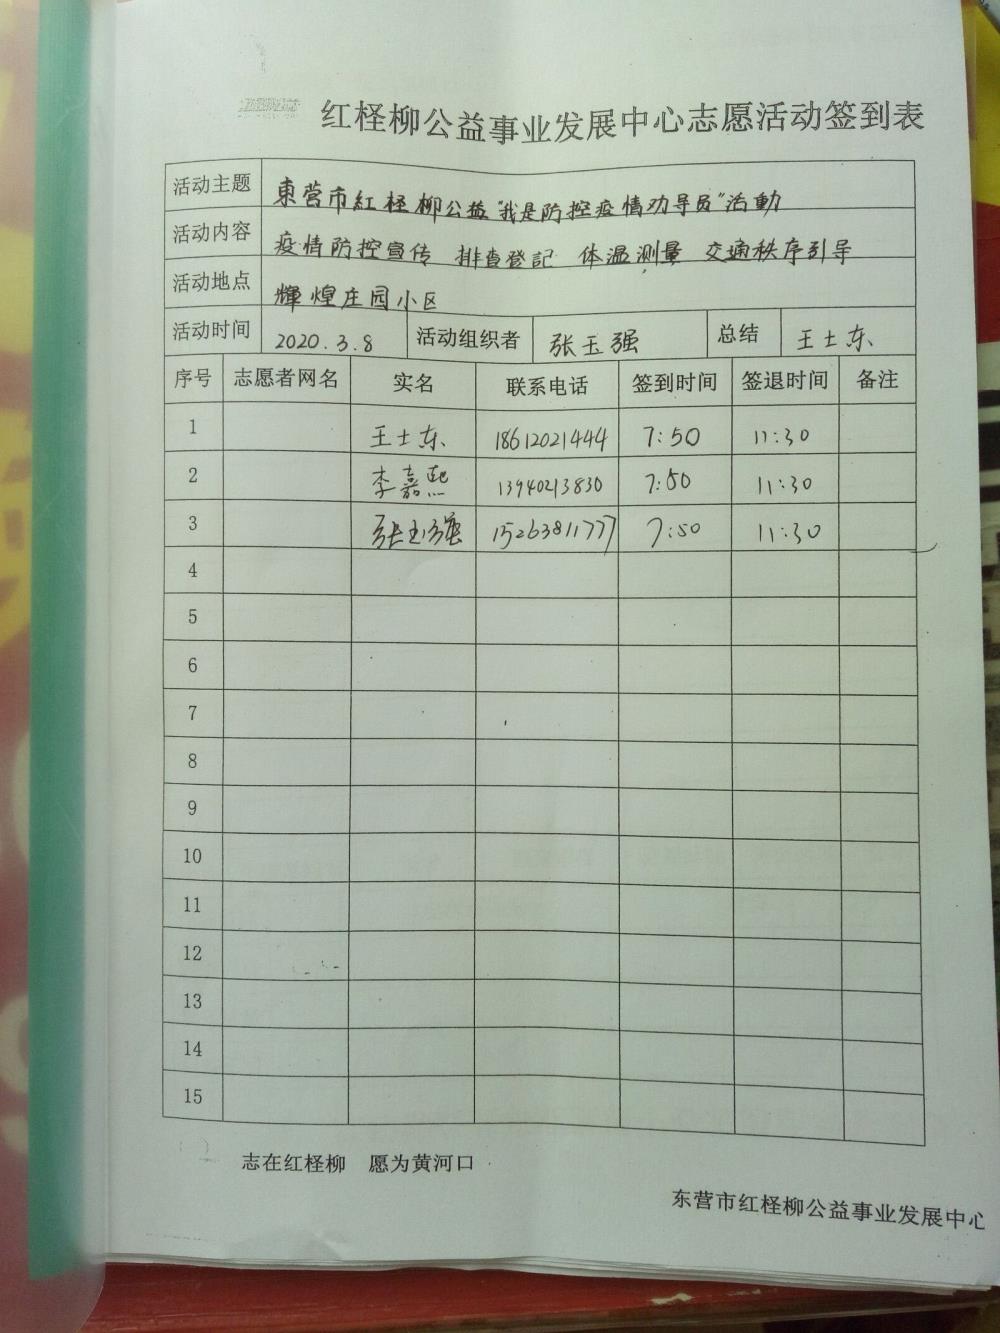 红柽柳公益事业发展中心志愿活动签到表
活动主题 東营市紅柽柳公益“我是防控疫情劝导员”活動
活动内容 疫情防控宣传 排查登記 体温测量 交通秩序引导
活动地点 輝煌庄园小区
活动时间 2020.3.8 活动组织者 张玉强 总结 王士东
序号 志愿者网名 实名 联系电话 签到时间 签退时间 备注
1 王士东 18612021444 7:50 11:30
2 李嘉熙 13940213830 7:50 11:30
3 张玉强 15263811777 7:50 11:30
4
5
6
7
8
9
10
11
12
13
14
15
志在红柽柳 愿为黄河口
东营市红柽柳公益事业发展中心